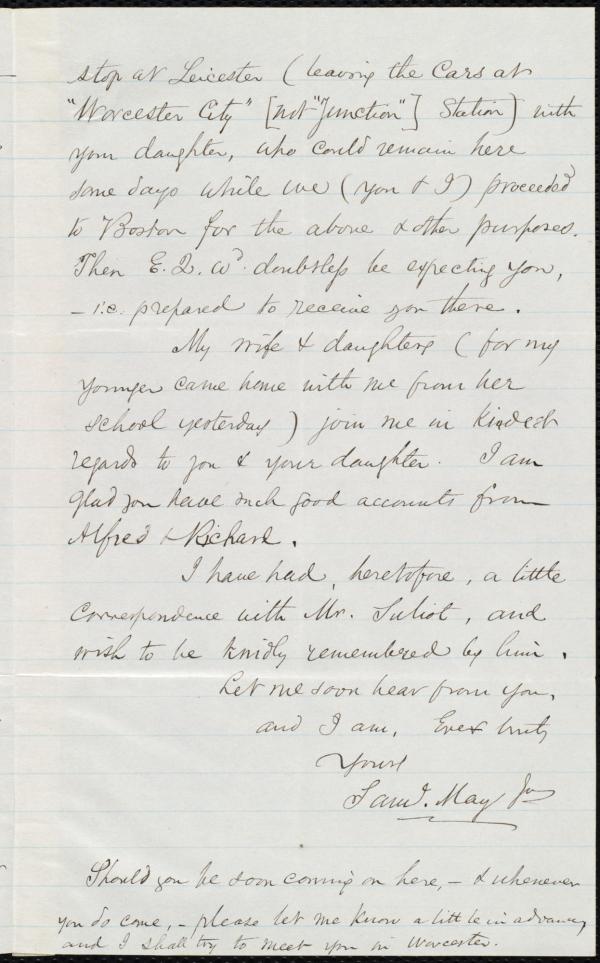 stop at Leicester (leaving the Cars at
"Worcester City" [not "Junction"] Station) with
your daughter, who could remain here
some days while we (you & I) proceeded
to Boston for the above & other purposes.
Then E. Q. wd. doubtless be expecting you,
– i.e. prepared to receive you there.
My wife & daughters (for my
younger came home with me from her
school yesterday) join me in kindest
regards to you & your daughter. I am
glad you have such good accounts from
Alfred & Richard.
I have had, heretofore, a little
correspondence with Mr. Suliot, and
wish to be kindly remembered by him.
Let me soon hear from you,
and I am, Ever truly
Yours
Saml. May Jr
Should you be soon coming on here, – & whenever
you do come, – please let me know a little in advance,
and I shall try to meet you in Worcester.